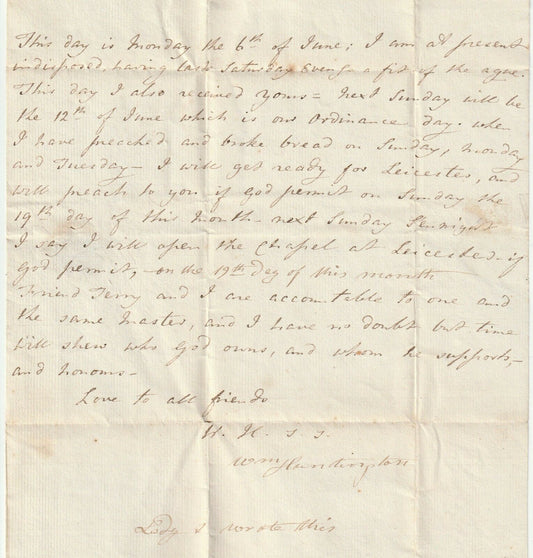 This day is Monday the 6th of June; I am at present
indisposed, having last Saturday Eveng a fit of the ague.
This day I also received yours = next Sunday will be
the 12th of June which is our Ordinance day. when
I have preached and broke bread on Sunday, Monday
and Tuesday — I will get ready for Leicester, and
will preach to you if God permit on Sunday the
19th day of this Month - next Sunday Sennight
I say I will open the Chapel at Leicester - if
god permit, - on the 19th Day of this month
Friend Terry and I are accountable to one and
the same Master, and I have no doubt but time
will shew who God owns, and whom he supports, -
and honours -
Love to all friends
W. H. S. S.
Wm Huntington
Lady S wrote this